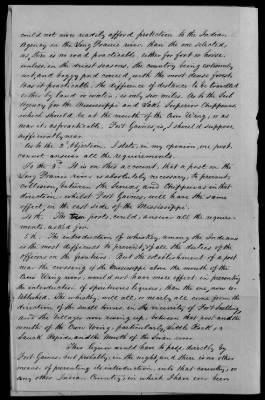 could not more readily afford protection to the Indian
Agency on the Long Prairie river than the one selected,
as there is no road practicable either for foot or horse
unless, in the driest seasons, the country being extremely
wet, and boggy and covered, with the most dense forest,
Was it practicable. The difference of distance to be travelled
either by land or water, is only six miles. As to the Sub
Agency for the Mississippi and Lake Superior Chippewas
which should be at the mouth of the Crow Wing, or as
near it as practicable. Fort Gaines, is, I should suppose
sufficiently near.
As to the 2d Objection. I state, in my opinion, one post
cannot answer all the requirements.
To the 3d It is on this account, that a post on the
Long Prairie river is absolutely necessary, to prevent
collision, between the Sioux, and Chippewas in that
direction. whilst Fort Gaines, will have the same
effect, on the east side of the Mississippi.
4th. The two posts, could, answer all the require-
ments, asked for.
5th. The introduction of whiskey, among the Indians
is the most difficult to prevent, of all the duties of the
officers on the frontiers. But the establishment of a post
near the crossing of the Mississippi above the mouth of the
Crow Wing river, would not have more effect in preventing
the introduction of spirituous liquors, than the one, now es-
tablished. The whiskey, will all, or nearly all come from the
direction of the small towns, in the vicinity of Fort Snelling,
and the Villages now rising up, between that post and the
mouth of the Crow Wing, particularly, Rock,
Sauck Rapids, and the Mouth of the river.
This liquor would have to pass directly by
Fort Gaines, but probably, in the night, and there is no other
means of preventing its introduction, into that country, or
any other Indian Country, in which I have ever been